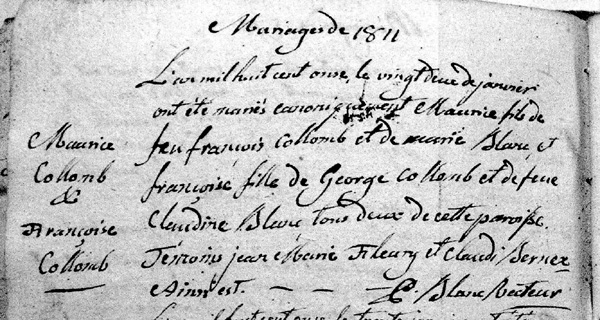 Mariages de 1811
L'an mil huit cent onse, le vingt deux de janvier
ont été mariés canoniquement Maurice fils de
feu françois Collomb et de marie Blanc et
françoise fille de George Collomb et de feue
Claudine Blanc tous deux de cette paroisse.
Temoins jean Marie Fleury et Claudi Bernez
Ainsi est. — — — C. Blanc Recteur
Maurice
Collomb
&
Françoise
Collomb